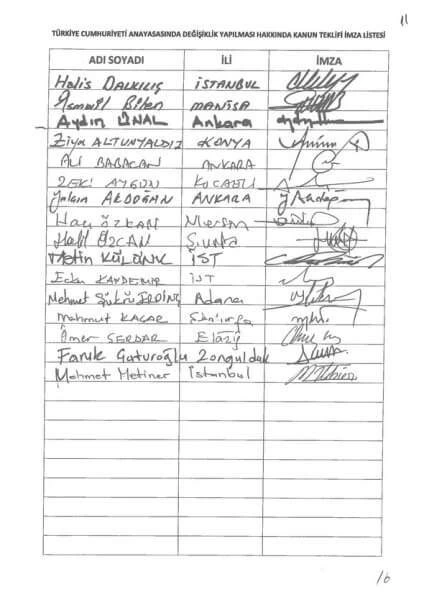 11
TÜRKİYE CUMHURİYETİ ANAYASASINDA DEĞİŞİKLİK YAPILMASI HAKKINDA KANUN TEKLİFİ İMZA LİSTESİ
ADI SOYADI İLİ İMZA
Halis DALKILIÇ İSTANBUL
İsmail Bilen MANİSA
Aydın ÜNAL Ankara
Ziya ALTUNYALDIZ KONYA
ALİ BABACAN ANKARA
ZEKİ AYGÜN KOCAELİ
Yalçın AKDOĞAN ANKARA
Hacı ÖZKAN Mersin
Halil ÖZCAN Ş.Urfa
Metin KÜLÜNK İST
KAYDEMİR İST
Mehmet Şükrü ERDİNÇ Adana
Mahmut KAÇAR Şanlıurfa
Ömer SERDAR Elazığ
Faruk Çaturoğlu Zonguldak
Mehmet Metiner İstanbul
16